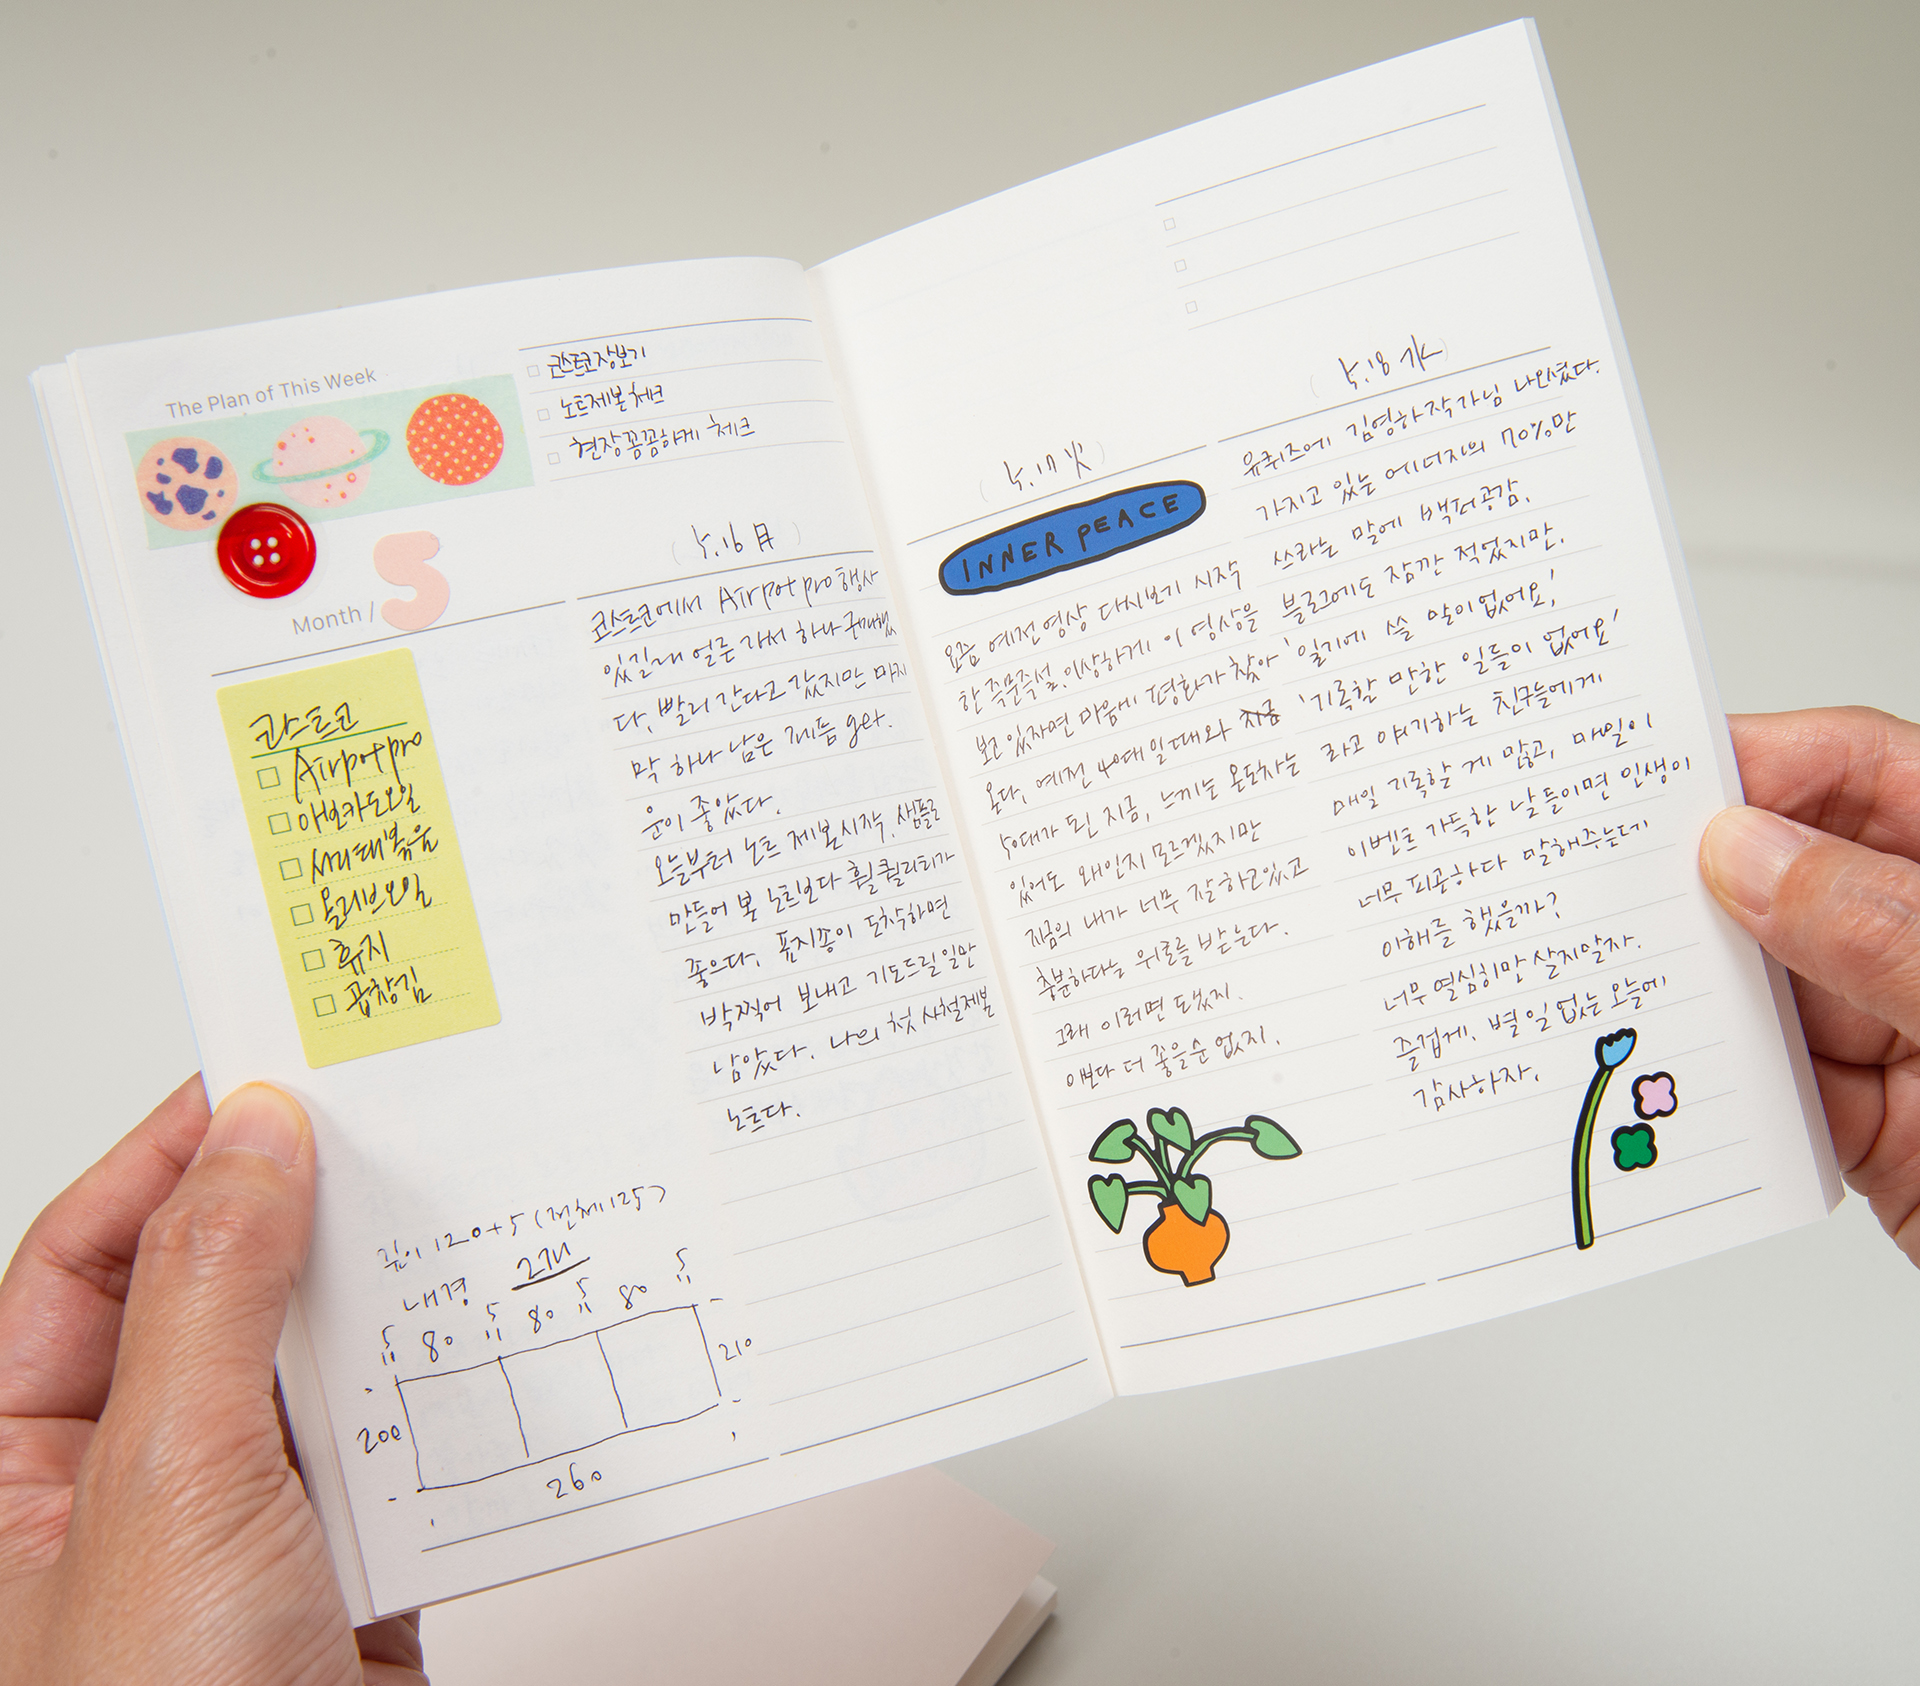 The Plan of This Week
Month / 5
코스트코장보기
노트제본체크
현장꼼꼼하게 체크
코스트코
Airpot pro
아보카도오일
올리브오일
휴지
곱창김
(5.16 月)
코스트코에서 Airpot pro 행사
있길래 얼른 가서 하나 구매했
다, 빨리 간다고 갔지만 마지
막 하나 남은 제품 get.
운이 좋았다.
오늘부터 노트 제본시작, 샘플로
만들어 본 노트보다 훨 퀄리티가
좋으다, 표지종이 도착하면
박찍어 보내고 기도드릴 일만
남았다. 나의 첫 사철제본
노트다.
깊이 120+5 (전체125)
내경 2개
5 80 5 80 5 80 5
210
200
260
(5.17 火)
INNER PEACE
요즘 예전영상 다시보기 시작
한 즉문즉설, 이상하게 이 영상을
보고 있자면 마음에 평화가 찾아
온다, 예전 40대일때와 지금
50대가 된 지금, 느끼는 온도차는
있어도 왜인지 모르겠지만
지금의 내가 너무 잘하고있고
충분하다는 위로를 받는다.
그래 이러면 됐지.
이보다 더 좋을순 없지.
(5.18 水)
유퀴즈에 김영하작가님 나오셨다.
가지고 있는 에너지의 70%만
쓰라는 말에 백퍼공감.
블로그에도 잠깐 적었지만.
'일기에 쓸 말이없어요,'
'기록할 만한 일들이 없어요'
라고 얘기하는 친구들에게
매일 기록할 게 많고, 매일이
이벤트 가득한 날들이면 인생이
너무 피곤하다 말해주는데
이해를 했을까?
너무 열심히만 살지말자.
즐겁게. 별일 없는 오늘에
감사하자.